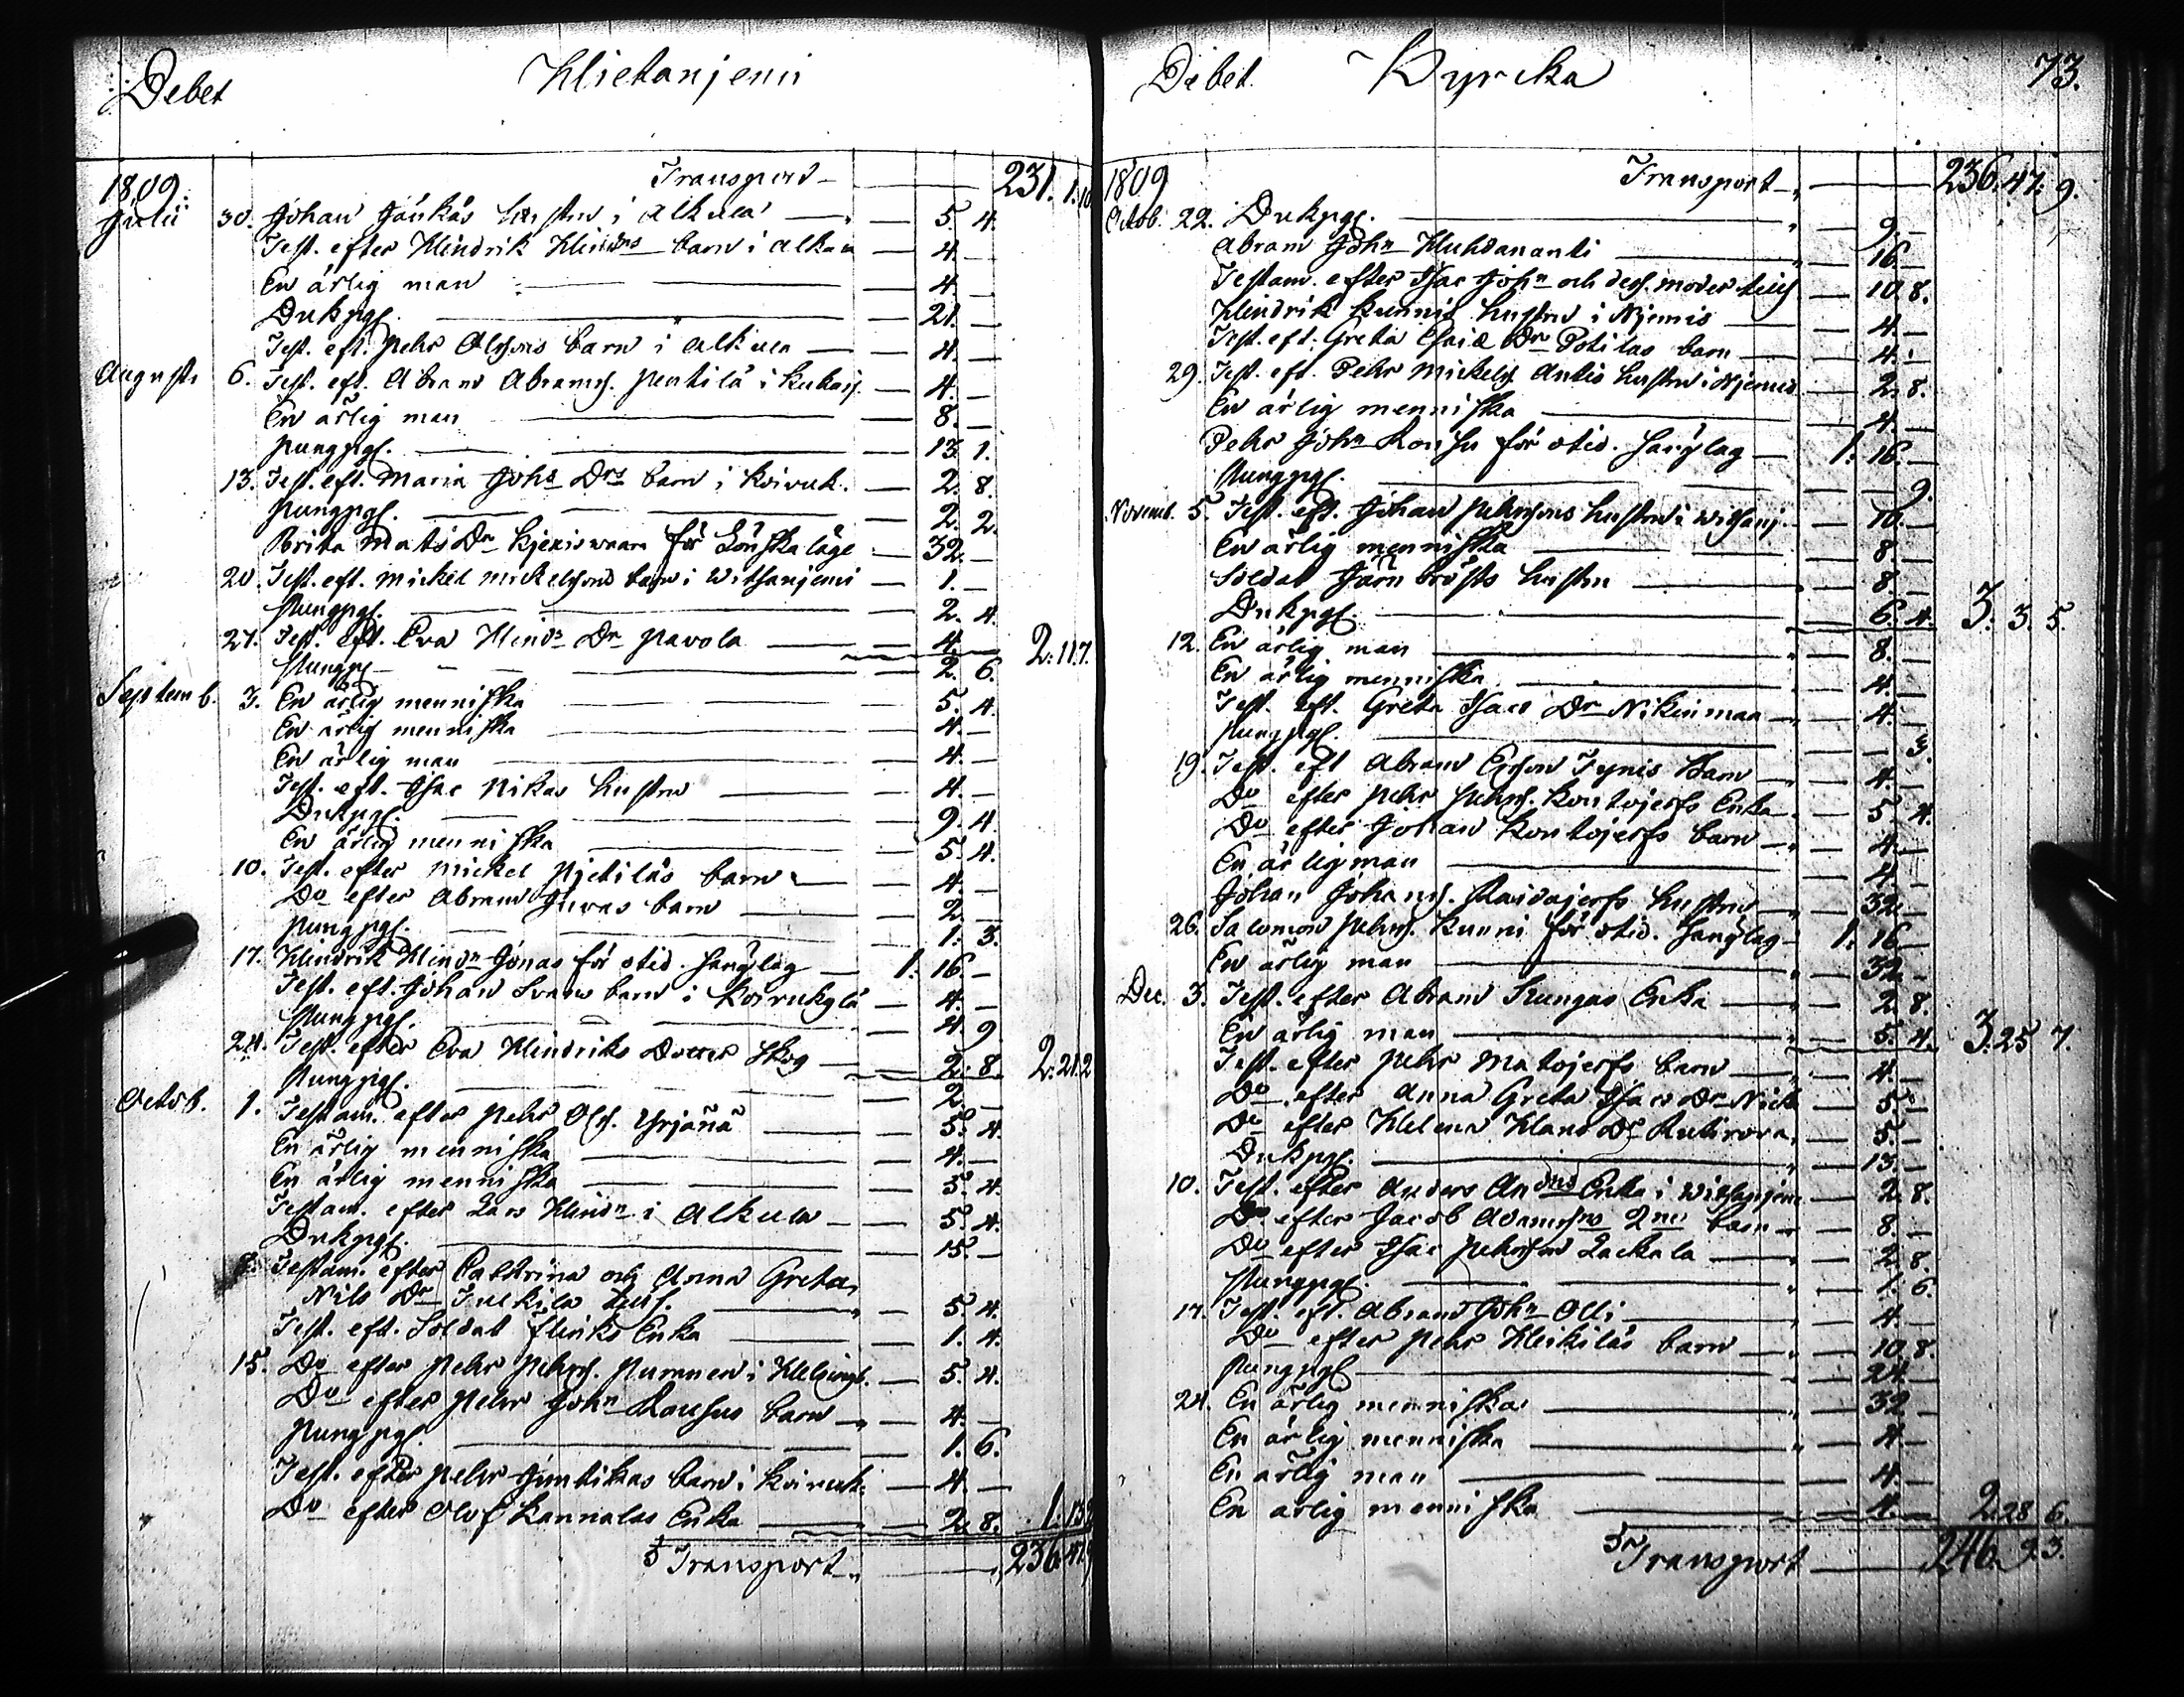 Debet Hietaniemi
Transport 231. 1. 10
1809.
Julii 30. Johan Jänkäs hustru i Alkula 5. 4.
Test. efter Hindrik Hindrs barn i Alkula 4. —
En ärlig man 4. —
Dukpgr. 21. —
Test. eft. Pehr Olssons barn i Alkula 4. —
Augusti 6. Test. eft. Abram Abramss. Pentilä i Kukasj. 4. —
En ärlig man 8. —
Pungpgr. 13. 1.
13. Test. eft. Maria Johs Drs barn i Koivuk. 2. 8.
Pungpgr. 2. 2.
Brita Mats Dr Kjexiswaara för Lönskaläge 32. —
20. Test. eft. Mickel Mickelssons barn i Witsanjemi 1. —
Pungpgr. 2. 4.
27. Test. eft. Eva Hinds Dr Pavola 4. 2: 11 7.
Pungpgr. 2. 6.
Septemb. 3. En ärlig menniska 5. 4.
En ärlig menniska 4. —
En ärlig man 4. —
Test. eft. Isac Nikas hustru 4. —
Dukpgr. 9. 4.
En ärlig menniska 5. 4.
10. Test. efter Mickel Pjetiläs barn 4. —
Do efter Abram Juvas barn 2. —
Pungpgr. 1. 3.
17. Hindrik Hindn Jonas för otid. sänglag 1. 16. —
Test. eft. Johan Svans barn i Koivukylä 4. —
Pungpgr. 4. 9
24. Test. efter Eva Hindriks Dotter Skog 2. 8. 2: 21. 2
Pungpgr. 2. —
Octob. 1. Testam. efter Pehr Olss. Yrjänä 5. 4.
En ärlig menniska 4. —
En ärlig menniska 5. 4.
Testam. efter Lars Hindn i Alkula 5. 4.
Dukpgr. 15. —
8. Testam. efter Cathrina och Anna Greta
Nils Dr Juckila tills. 5. 4.
Test. eft. Soldat Flinks Enka 1. 4.
15. Do efter Pehr Pehrss. Pumnen i Helsingb. 5. 4.
Do efter Pehr John Rausus barn 4. —
Pungpgr. 1. 6.
Test. efter Pehr Juntikas barn i Koivuk. 4. —
Do efter Olof Kannalas Enka 2. 8. 1. 13 2
Transport 236. 47. 9
Debet Kyrcka 73.
1809 Transport 236. 47. 9.
Octob. 22. Dukpgr. 9. —
Abram John Huhdananti 16. —
Testam. efter Isac John och dess moder tills 10. 8.
Hindrik Kunnis hustru i Njemis 4. —
Test. eft. Greta Esaiæ Dr Potilas barn 4. —
29. Test. eft. Pehr Mickelss. Antis hustru i Njemis 2. 8.
En ärlig menniska 4. —
Pehr John Rousu för otid. sänglag 1. 16. —
Pungpgr. — 9
Novemb. 5. Test. eft. Johan Pehrssons hustru i Witsanj. 10. —
En ärlig menniska 8. —
Soldat Järnbrösts hustru 8. —
Dukpgr. 6. 4. 3. 3. 5.
12. En ärlig man 8. —
En ärlig menniska 4. —
Test. eft. Greta Isacs Dr Nikinmaa 4. —
Pungpgr. — 3.
19. Test. eft Abram Ersson Tynis Barn 4. —
Do efter Pehr Pehrss. Kontojerfs Enka 5. 4.
Do efter Johan Kontojerfs barn 4. —
En ärlig man 4. —
Johan Johanss. Raidajerfs hustru 32. —
26. Salomon Pehrss. Kunni för otid. sänglag 1. 16. —
En ärlig man 32. —
Dec. 3. Test. efter Abram Kungas Enka 2. 8.
En ärlig man 5. 4. 3. 25 7.
Test. efter Pehr Matojerfs barn 4. —
Do efter Anna Greta Isacs Dr Nick 5. —
Do efter Helena Hans Dr Rutirova 5. —
Dukpgr. 13. —
10. Test. efter Anders Andns Enka i Witsanjemi 2. 8.
Do efter Jacob Adamssns 2ne barn 8. —
Do efter Isac Pehrsson Lackala 2. 8.
Pungpgr. 1. 6.
17. Test. eft. Abram John Olli 4. —
Do efter Pehr Heikiläs barn 10. 8.
Pungpgr. 24. —
24. En ärlig menniska 32 —
En ärlig menniska 4. —
En ärlig man 4. —
En ärlig menniska 4. — 2. 28 6.
Transport 246. 9. 3.